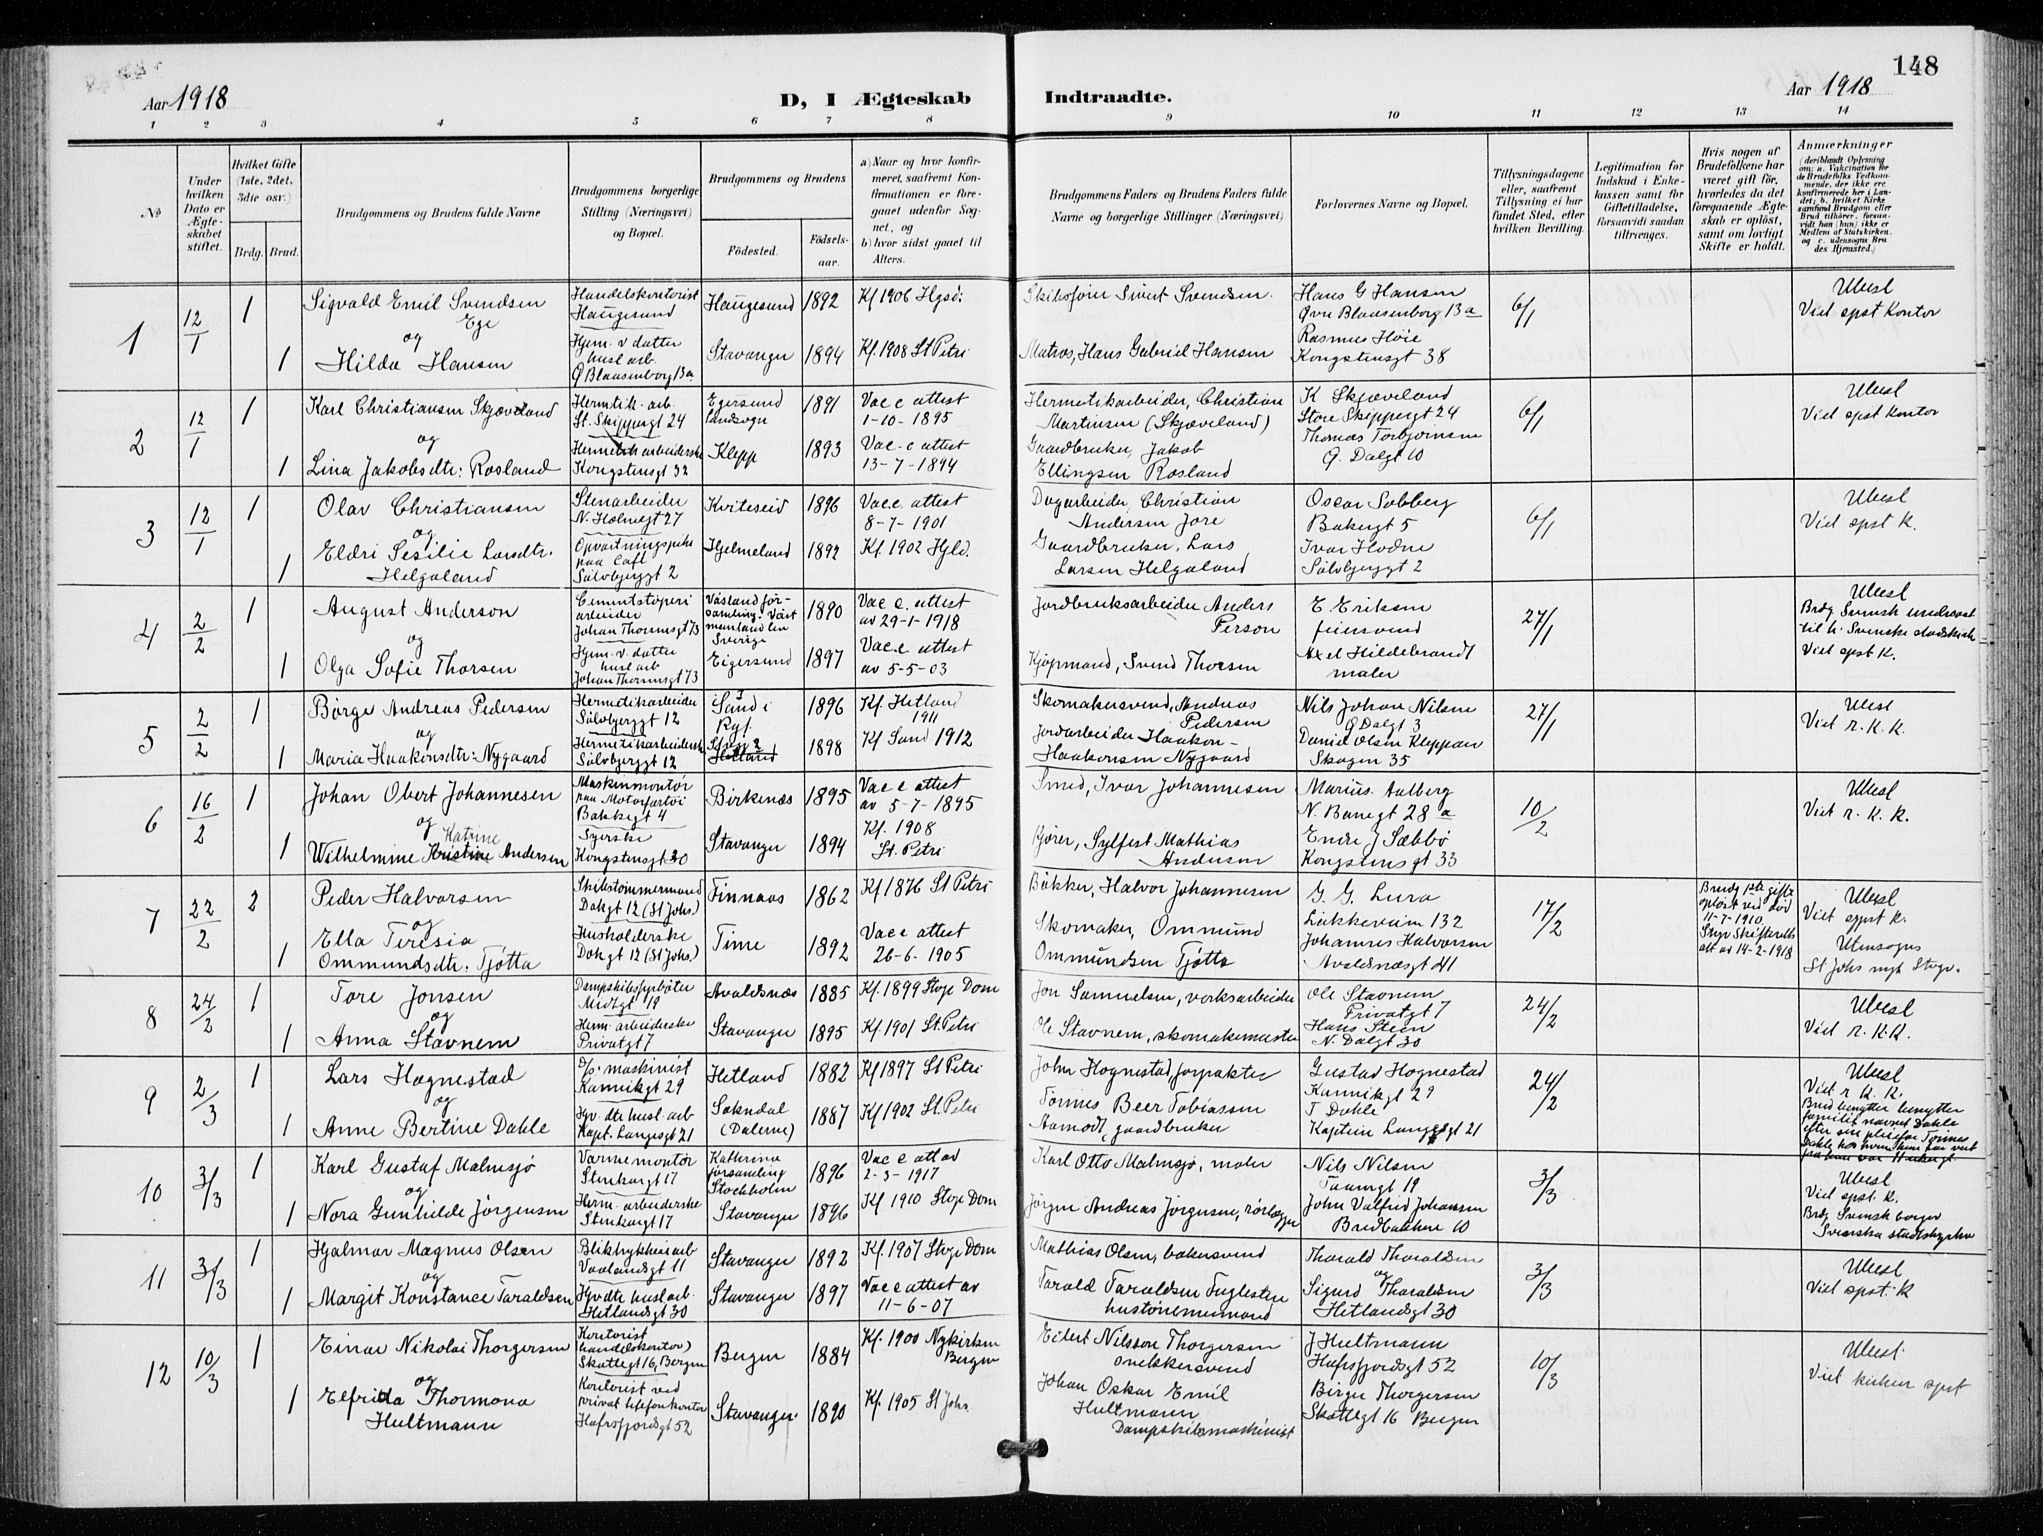 148
Aar 1918
D, I Ægteskab Indtraadte.
Aar 1918
1 2 3 4 5 6 7 8 9 10 11 12 13 14
No
Under hvilken Dato er Ægteskabet stiftet.
Hvilket Gifte (1ste, 2det, 3die osv.)
Brdg. Brud.
Brudgommens og Brudens fulde Navne
Brudgommens borgerlige Stilling (Næringsvei) og Bopæl.
Brudgommens og Brudens
Födested.
Födselsaar.
a) Naar og hvor konfirmeret, saafremt Konfirmationen er foregaaet udenfor Sognet, og
b) hvor sidst gaaet til Alters.
Brudgommens Faders og Brudens Faders fulde Navne og borgerlige Stillinger (Næringsvei)
Forlovernes Navne og Bopæl.
Tillysningsdagene eller, saafremt Tillysning ei har fundet Sted, efter hvilken Bevilling.
Legitimation for Indskud i Enkekassen samt for Giftetilladelse, forsaavidt saadan tiltrænges.
Hvis nogen af Brudefolkene har været gift før, hvorledes da det foregaaende Ægteskab er oplöst, samt om lovligt Skifte er holdt.
Anmærkninger
(deriblandt Oplysning om: a. Vakcination for de Brudefolks Vedkommende, der ikke ere konfirmerede her i Landet; b. hvilket Kirkesamfund Brudgom eller Brud tilhörer, forsaavidt han (hun) ikke er Medlem af Statskirken, og c. udensogns Brudes Hjemsted.)
1 12/1 1 Sigvald Emil Svendsen Ege
Handelskontorist Haugesund
Haugesund 1892 Kf 1906 Hgs.
Skibsfører Sivert Svendsen.
Hans G Hansen Øvre Blaasenborg 13a
6/1
Ubesl Viet spst Kontor
og
1 Hilda Hansen
Hjem. v datter husl arb. Ø Blaasenborg 13a
Stavanger 1894 Kf. 1908 St Petri
Matros, Hans Gabriel Hansen
Rasmus Høie Kongstensgt 38
2 12/1 1 Karl Christiansen Skjæveland
Hermetik-arb. St. Skippergt 24
Egersund landsogn 1891 Vacc attest 1-10-1895
Hermetikarbeider, Christian Martinsen (Skjæveland)
K Skjæveland Store Skippergt 24
6/1
Ubesl Viet spst Kontor
og
1 Lina Jakobsdtr: Rosland
Hermetikarbeiderske Kongstensgt 32
Klepp 1893 Vac-c attest 13-7-1894
Gaardbruker, Jakob Ellingsen Rosland
Thomas Torbjørnsen Ø. Dalgt 10
3 12/1 1 Olav Christiansen
Stenarbeider N. Holmegt 27
Kviteseid 1896 Vacc. attest 8-7-1901
Dagarbeider, Christian Andersen Jore
Oscar Solberg Bakergt 5
6/1
Ubesl Viet spst K.
og
1 Eldri Sesilie Larsdtr. Helgaland
Opvartningspike paa Café Sølvbjerggt 2
Hjelmeland 1892 Kf. 1902 Hjld.
Gaardbruker, Lars Larsen Helgaland
Ivar Hodne Sølvbjerggt 2
4 2/2 1 August Anderson
Cementstøperi arbeider Johan Thorensgt 73
Våsland församling. Västmanland län Sverige
1890 Vac c. attest av 29-1-1918
Jordbruksarbeider Anders Person
E. Eriksen feiersvend
27/1
Ubesl Brdg Svensk undersaat til h. Svenske stadskirke Viet spst K.
og
1 Olga Sofie Thorsen
Hjem. v. datter husl arb Johan Thorensgt 73
Eigersund 1897 Vac.c attest av 5-5-03
Kjøpmand, Svend Thorsen
Axel Hildebrandt maler
5 2/2 1 Børge Andreas Pedersen
Hermetikarbeider Sølvbjerggt 12
Sand i Ryf. 1896 Kf. Hetland 1911
Skomakersvend, Andreas Pedersen
Nils Johan Nilsen Ø Dalgt 3
27/1
Ubesl Viet r. K. K.
og
1 Maria Haakonsdtr: Nygaard
Hermetikarbeiderske Sølvbjerggt 12
Hetland 1898 Kf Sand 1912
Jordarbeider Haakon Haakonsen Nygaard
Daniel Olsen Kleppan Skagen 35
6 16/2 1 Johan Obert Johannesen
Maskinmontør paa Motorfartøi Bakkegt 4
Birkenæs 1895 Vac c attest av 5-7-1895
Smed, Ivar Johannesen
Marius. Aalberg N. Banegt 28 a
10/2
Ubesl Viet r. K. K.
og Katrine
1 Wilhelmine Kristine Andersen
Syerske Kongstensgt 30
Stavanger 1894 Kf. 1908 St. Petri
Kjører, Sylfest Mathias Andersen
Endre J Sæbbø Kongstensgt 33
7 22/2 2 Peder Halvorsen
Skibstømmermand Dokgt 12 (St Johs.)
Finnaas 1862 Kf 1876 St Petri
Bøkker, Halvor Johannesen
G. G. Lura Lukkeveien 132
17/2
Brudg 1ste gifte opløst ved død 11-7-1910. Stvgr Skifteretts att av 14-2-1918
Ubesl Viet spst K. Utensogns St Johs mgh Stvgr.
og
1 Ella Teresia Ommundsdtr. Tjøtta
Husholderske Dokgt 12 (St Johs.)
Time 1892 Vacc attest 26-6-1905
Skomaker, Ommund Ommundsen Tjøtta
Johannes Halvorsen Avaldsnæsgt 41
8 24/2 1 Tore Jonsen
Dampskibsfyrbøter Midtgt 19
Avaldsnæs 1885 Kf. 1899 Stvgr Dom
Jon Samuelsen, verksarbeider
Ole Stavnem Privatgt 7
24/2
Ubesl Viet r. K. K.
og
1 Anna Stavnem
Herm. arbeiderske Privatgt 7
Stavanger 1895 Kf. 1901 St. Petri
Ole Stavnem, skomakermester
Hans Steen N. Dalgt 30
9 2/3 1 Lars Hognestad
D/s. maskinist Kannikgt 29
Hetland 1882 Kf 1897 St Petri
John Hognestad, forpakter
Gustad Hognestad Kannikgt 29
24/2
Ubesl Viet r K. K. Brud benytter familie navnet Dahle efter sin pleiefar Tønnes Dahle
og
1 Anne Bertine Dahle
Hjv. dtr husl. arb Kapt. Langesgt 21
Sokndal (Dalerne) 1887 Kf 1902 St. Petri
Tønnes Beer Tobiassen Aamodt, gaardbruker
T Dahle Kaptein Langesgt 21
10 3/3 1 Karl Gustaf Malmsjø
Varmemontør Stenkargt 17
Kathrina församling Stockholm 1896 Vac c att av 2-3-1917
Karl Otto Malmsjø, maler
Nils Nilsen Taarngt 19
3/3
Ubesl Viet spst. K. Brdg Svensk borger Svenska stadskyrka
og
1 Nora Gunhilde Jørgensen
Herm. arbeiderske Stenkargt 17
Stavanger 1896 Kf 1910 Stvgr Dom
Jørgen Andreas Jørgensen, rørlægger
John Valfrid Johansen Bredbakken 10
11 3/3 1 Hjalmar Magnus Olsen
Bliktrykkeriarb Vaalandsgt 11
Stavanger 1892 Kf. 1907 Stvgr Dom
Mathias Olsen, bakersvend
Thorald Thoraldsen
3/3
Ubesl Viet spst. K
og
1 Margit Konstance Taraldsen
Hjv dtr husl arb. Hetlandsgt 30
Stavanger 1897 Vac c attest av 11-6-07
Tarald Taraldsen Fuglesten hustømmermand
og Sigurd Thoraldsen Hetlandsgt 30
12 10/3 1 Einar Nikolai Thorgersen
Kontorist (handelskontor) Skottegt 16, Bergen
Bergen 1884 Kf. 1900 Nykirken Bergen
Eilert Nilsson Thorgersen snekkersvend
J Hultmann Hafrsfjordsgt 52
10/3
Ubesl. Viet kirken spst
og
1 Elfrida Thormona Hultmann
Kontorist ved privat telefonkontor Hafrsfjordsgt 52
Stavanger. 1890 Kf. 1905 St Johs.
Johan Oskar Emil Hultmann Dampskibsmaskinist
Birger Thorgersen Skottegt 16 Bergen